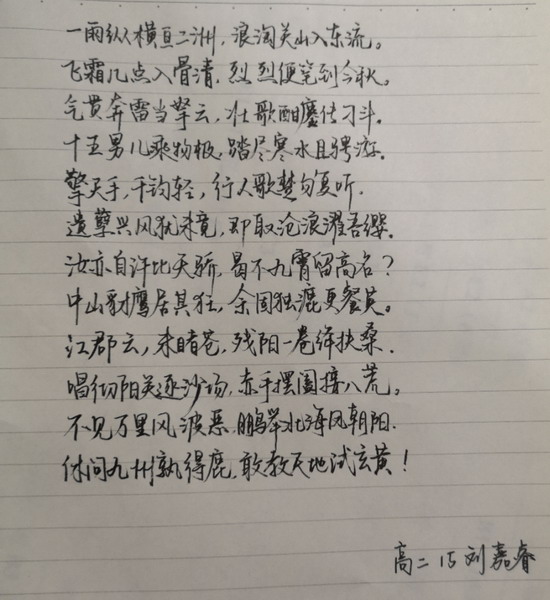 一雨纵横亘二洲，浪淘关山入东流。
飞霜几点入骨清，烈烈便觉到今秋。
气贯奔雷当擎云，壮歌酣鏖传刁斗。
十五男儿乘物极，踏尽寒水且骋游。
擎天手，千钧轻，行人歌楚匀复听。
遗孽兴风犹未竟，即取沧浪濯吾缨。
汝亦自许比天骄，曷不九霄留高名？
中山豺鹰居其狂，余固独漉更餐英。
江郡云，来睹苍，残阳一卷绛扶桑。
唱彻阳关逐沙场，赤手摆阖接八荒。
不见万里风波恶，鹏举北海风朝阳。
休问九州孰得鹿，敢教天地试玄黄！
高二15 刘嘉睿